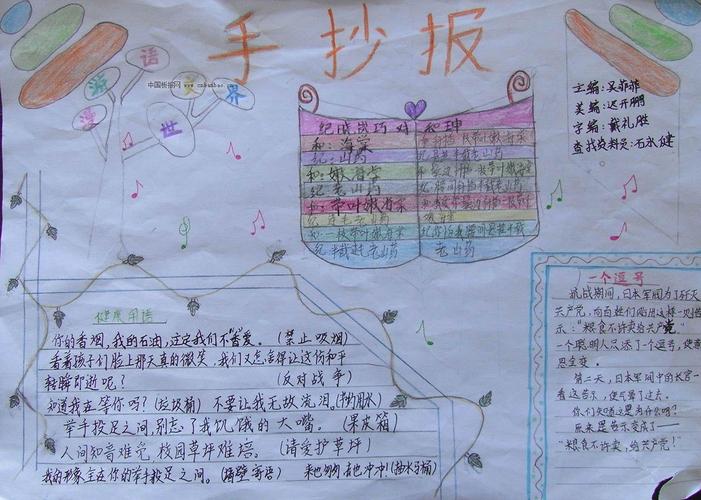 手抄报
漫游语文世界
中国板报网 www.cnbanbao.com
主编:吴菲菲
美编:迟开鹏
字编:戴礼胜
查找资料员:石永健
纪晓岚巧对和珅
和:海棠
纪:山药
和:嫩海棠
纪:老山药
和:带叶嫩海棠
纪:带毛老山药
和:一枝带叶嫩海棠
老山药
健康用语
你的香烟,我的石油,注定我们不"爱"。(禁止吸烟)
看着孩子们脸上那天真的微笑,我们又怎舍得让这份和平
转瞬即逝呢?(反对战争)
知道我在等你吗?(垃圾桶) 不要让我无故流泪。(节约用水)
举手投足之间别忘了我饥饿的大嘴。(果皮箱)
人间知音难觅,校园草坪难培。(请爱护草坪)
我的形象全在你的举手投足之间。(墙壁寄语) 来也匆匆去也冲冲!(抽水马桶)
一个逗号
抗战期间,日本军阀为了歼灭
共产党,向百姓们贴出这样一
示:"粮食不许卖给共产党"
一个聪明人只添了一个逗号,使意
思全变。
第二天,日本军阀中的长官一
看这告示,便气昏了过去。
你们知道这是为什么吗?
原来是告示变成了——
"粮食不许卖,给共产党!"